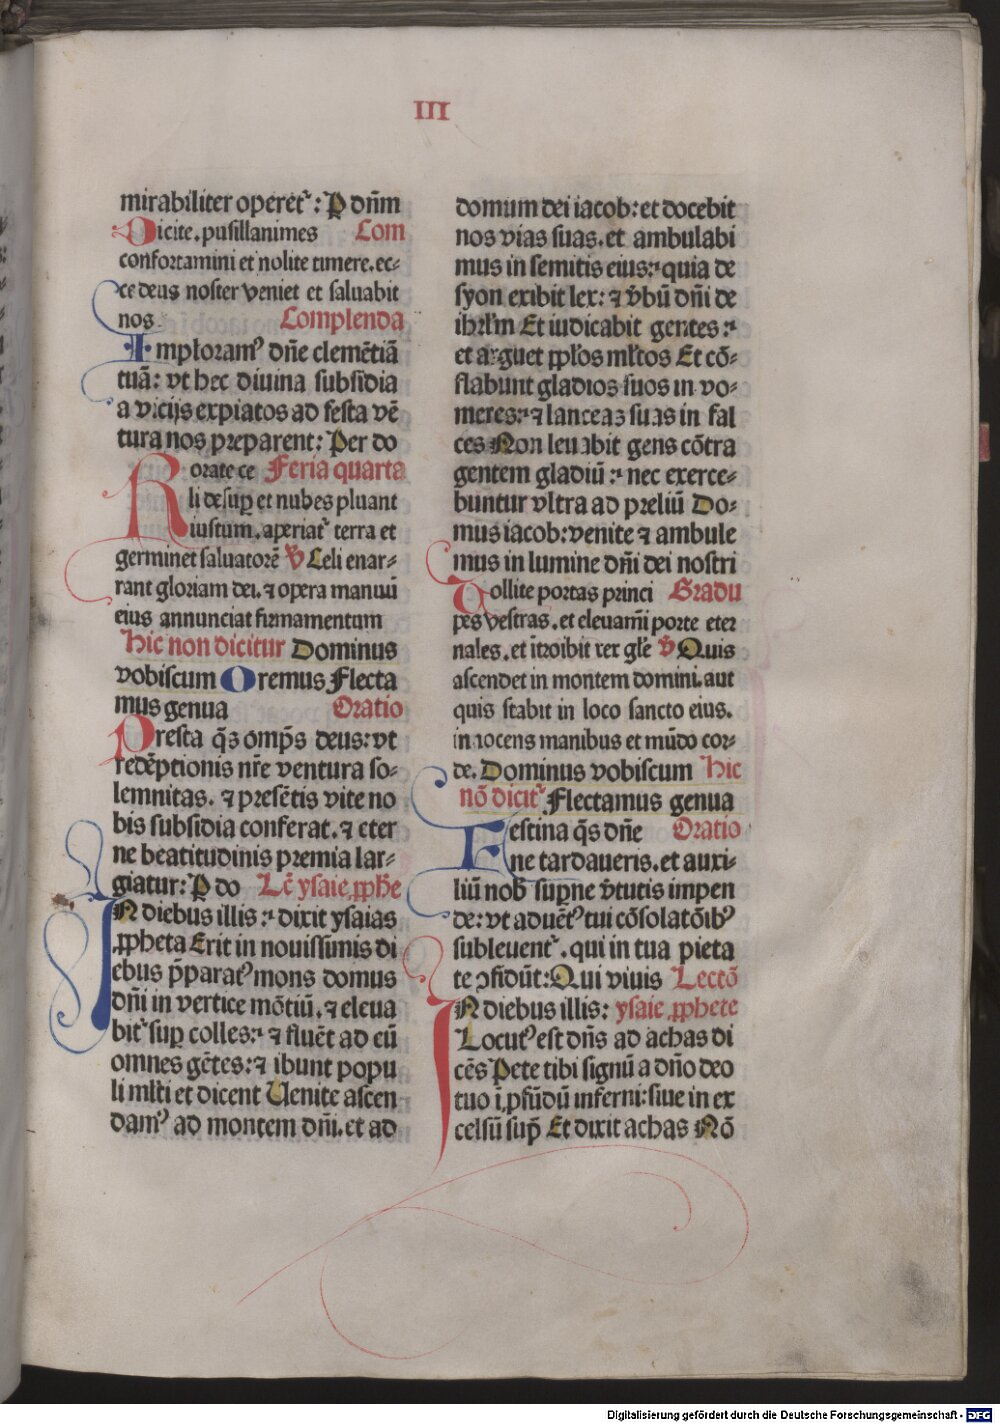 III
mirabiliter operet᷑: P dn̄m
Dicite. pusillanimes Com
confortamini et nolite timere. ec⸗
ce deus noster veniet et saluabit
nos Complenda
Imploram⁹ dn̄e clemētiā
tuā: vt hec diuina subsidia
a vicijs expiatos ad festa vē
tura nos preparent: Per do
orate ce Feria quarta
Rli desuꝑ et nubes pluant
iustum. aperiat᷑ terra et
germinet saluatorē ℣ Celi enar⸗
rant gloriam dei. ⁊ opera manuū
eius annunciat firmamentum
Hic non dicitur Dominus
vobiscum Oremus Flecta
mus genua Oratio
Presta q̄s omp̄s deus: vt
redēptionis nr̄e ventura so⸗
lemnitas. ⁊ presētis vite no
bis subsidia conferat. ⁊ eter
ne beatitudinis premia lar⸗
giatur: P do Lc̄ ysaie ꝓph̄e
IN diebus illis: dixit ysaias
ꝓpheta Erit in nouissimis di
ebus p̄parat⁹ mons domus
dn̄i in vertice mōtiū. ⁊ eleua
bit᷑ suꝑ colles: ⁊ fluēt ad eū
omnes gētes: ⁊ ibunt popu
li ml̄ti et dicent Uenite ascen
dam⁹ ad montem dn̄i. et ad
domum dei iacob: et docebit
nos vias suas. et ambulabi
mus in semitis eius: quia de
syon exibit lex: ⁊ v̄bū dn̄i de
ihrl̄m Et iudicabit gentes:
et arguet ppl̄os ml̄tos Et cō⸗
flabunt gladios suos in vo⸗
meres: ⁊ lanceas suas in fal
ces Non leuabit gens cōtra
gentem gladiū: nec exerce⸗
buntur vltra ad preliū Do⸗
mus iacob: venite ⁊ ambule
mus in lumine dn̄i dei nostri
Tollite portas princi Gradu
pes vestras. et eleuam̄i porte eter
nales. et ītroibit rex gl̄e ℣ Quis
ascendet in montem domini. aut
quis stabit in loco sancto eius.
innocens manibus et mūdo cor⸗
de. Dominus vobiscum Hic
nō dicit᷑ Flectamus genua
Festina q̄s dn̄e Oratio
ne tardaueris. et auxi⸗
liū nob̄ sup̄ne v̄tutis impen
de: vt aduēt⁹ tui cōsolatōib⁹
subleuent᷑. qui in tua pieta
te ꝯfidūt: Qui viuis Lectō
IN diebus illis: ysaie ꝓphete
Locut⁹ est dn̄s ad achas di
cēs Pete tibi signū a dn̄o deo
tuo ī ꝓfūdū inferni: siue in ex
celsū sup̄ Et dixit achas Nō
Digitalisierung gefördert durch die Deutsche Forschungsgemeinschaft - DFG